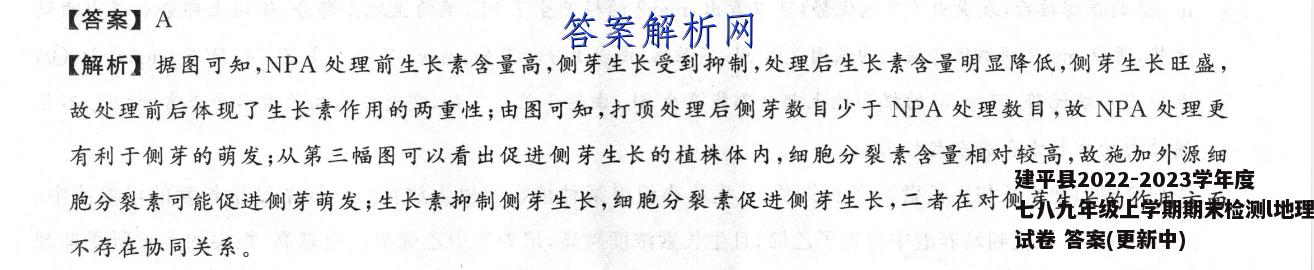 【答案】A
答案解析网
【解析】据图可知,NPA 处理前生长素含量高,侧芽生长受到抑制,处理后生长素含量明显降低,侧芽生长旺盛,
故处理前后体现了生长素作用的两重性;由图可知,打顶处理后侧芽数目少于 NPA 处理数目,故 NPA 处理更
有利于侧芽的萌发;从第三幅图可以看出促进侧芽生长的植株体内,细胞分裂素含量相对较高,故施加外源细
胞分裂素可能促进侧芽萌发;生长素抑制侧芽生长,细胞分裂素促进侧芽生长,二者在对侧芽生长的作用方面
不存在协同关系。
建平县2022-2023学年度
七八九年级上学期期末检测l地理
试卷 答案(更新中)